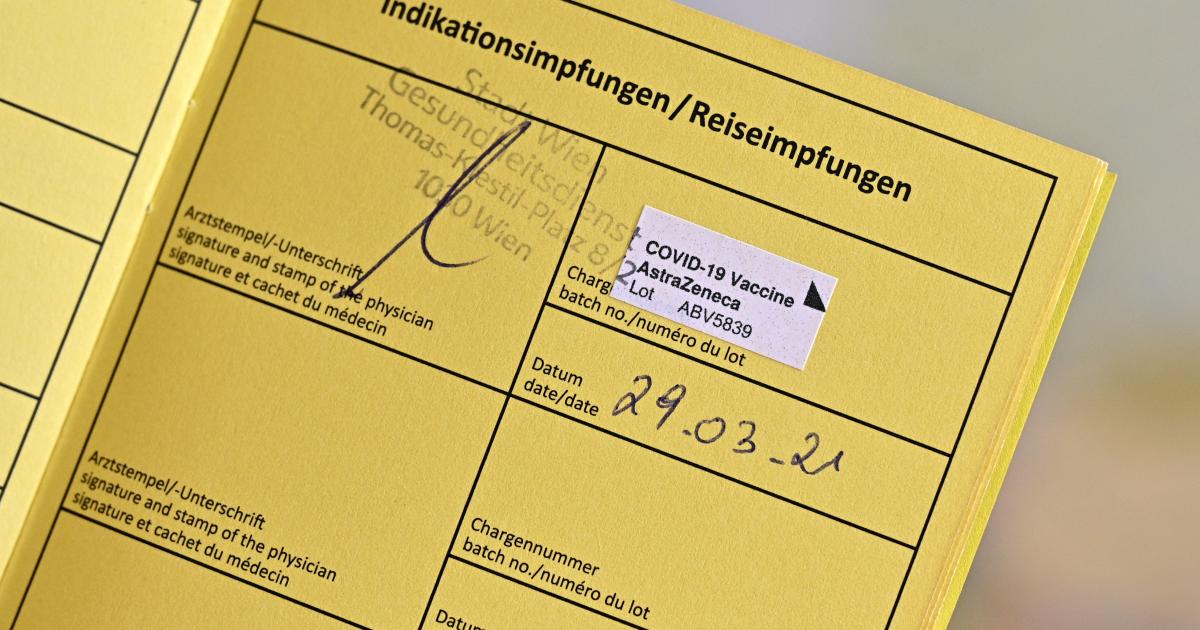 Indikationsimpfungen/Reiseimpfungen
Stadt Wien
Gesundheitsdienst
Thomas-Klestil-Platz 8/2
Wien
Arztstempel/-Unterschrift
signature and stamp of the physician
signature et cachet du médecin
COVID-19 Vaccine
AstraZeneca
Lot ABV5839
batch no./numéro du lot
Datum
date/date
29.03.21
Arztstempel/-Unterschrift
signature and stamp of the physician
signature et cachet du médecin
Chargennummer
batch no./numéro du lot
Datum